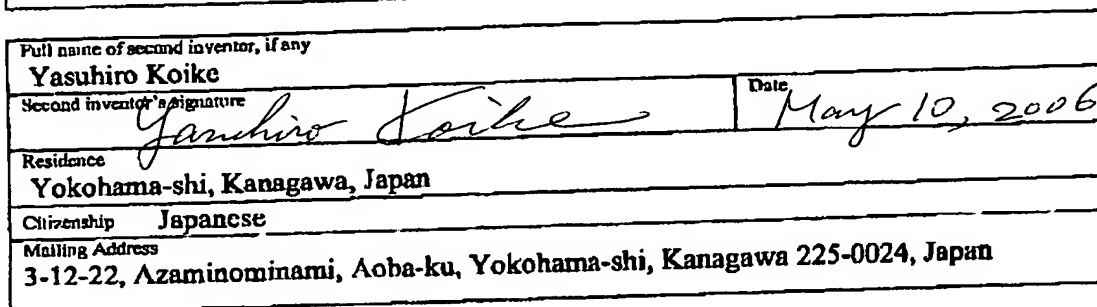 Full name of second inventor, if any
Yasuhiro Koike
Second inventor's signature
Yasuhiro Koike
Date
May 10, 2006
Residence
Yokohama-shi, Kanagawa, Japan
Citizenship Japanese
Mailing Address
3-12-22, Azaminominami, Aoba-ku, Yokohama-shi, Kanagawa 225-0024, Japan